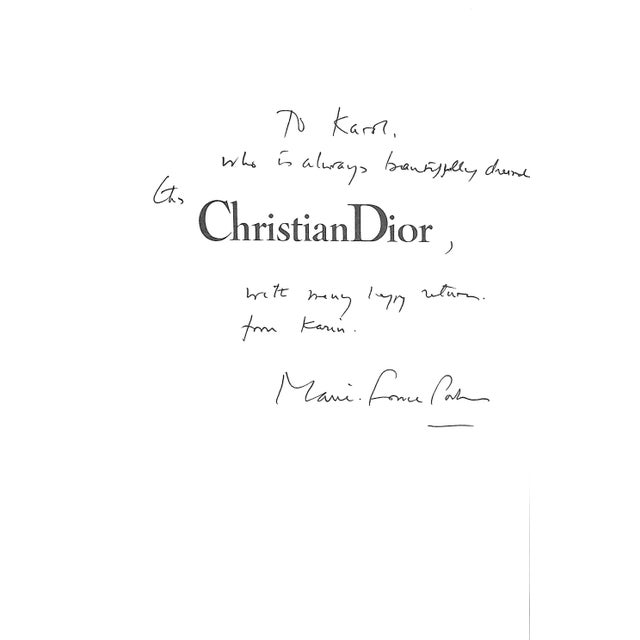 To Karol,
who is always beautifully dressed
this
Christian Dior,
with many happy returns.
from Karin.
Marie-France Pochna